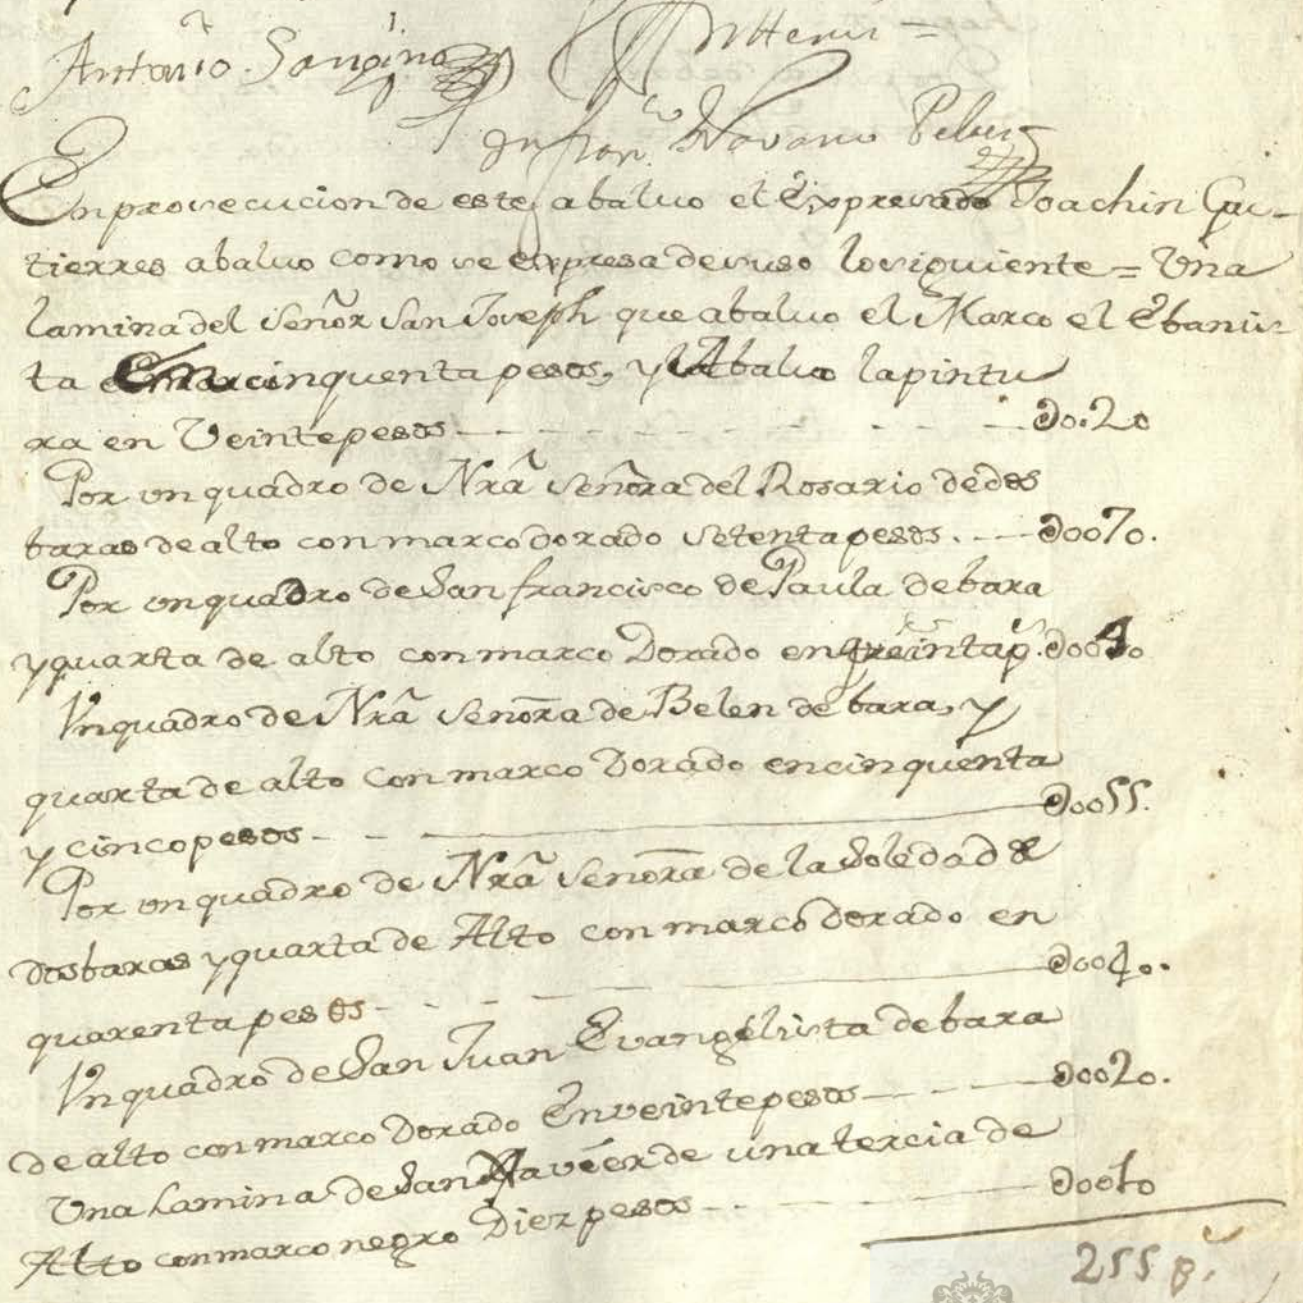 Antonio Sanxino
Antemi =
Franco Navarro Pelaes
En prosecucion de este abaluo el Expresado Joachin Gu-
tierres abaluo como se expresa de suso lo siguiente = Una
lamina del Señor San Joseph que abaluo el Marco el Ebanis-
ta en cinquenta pesos, y Abaluo la pintu
ra en Veinte pesos - - - - - - - - Ɖ0.20
Por un quadro de Nrã Señora del Rosario de dos
baras de alto con marco dorado setenta pesos. - - - Ɖ0070.
Por un quadro de San francisco de Paula de bara
y quarta de alto con marco Dorado en treinta ps. Ɖ0040
Un quadro de Nrã Señora de Belen de bara, y
quarta de alto con marco Dorado en cinquenta
y cinco pesos - - - Ɖ0055.
Por un quadro de Nrã Señora de la Soledad de
dos baras y quarta de Alto con marco Dorado en
quarenta pesos - - - Ɖ0040.
Un quadro de San Juan Evangelista de bara
de alto con marco Dorado En veinte pesos - - - Ɖ0020.
Una Lamina de San Xavier de una tercia de
Alto con marco negro Diez pesos - - - - Ɖ0010
255 ps.